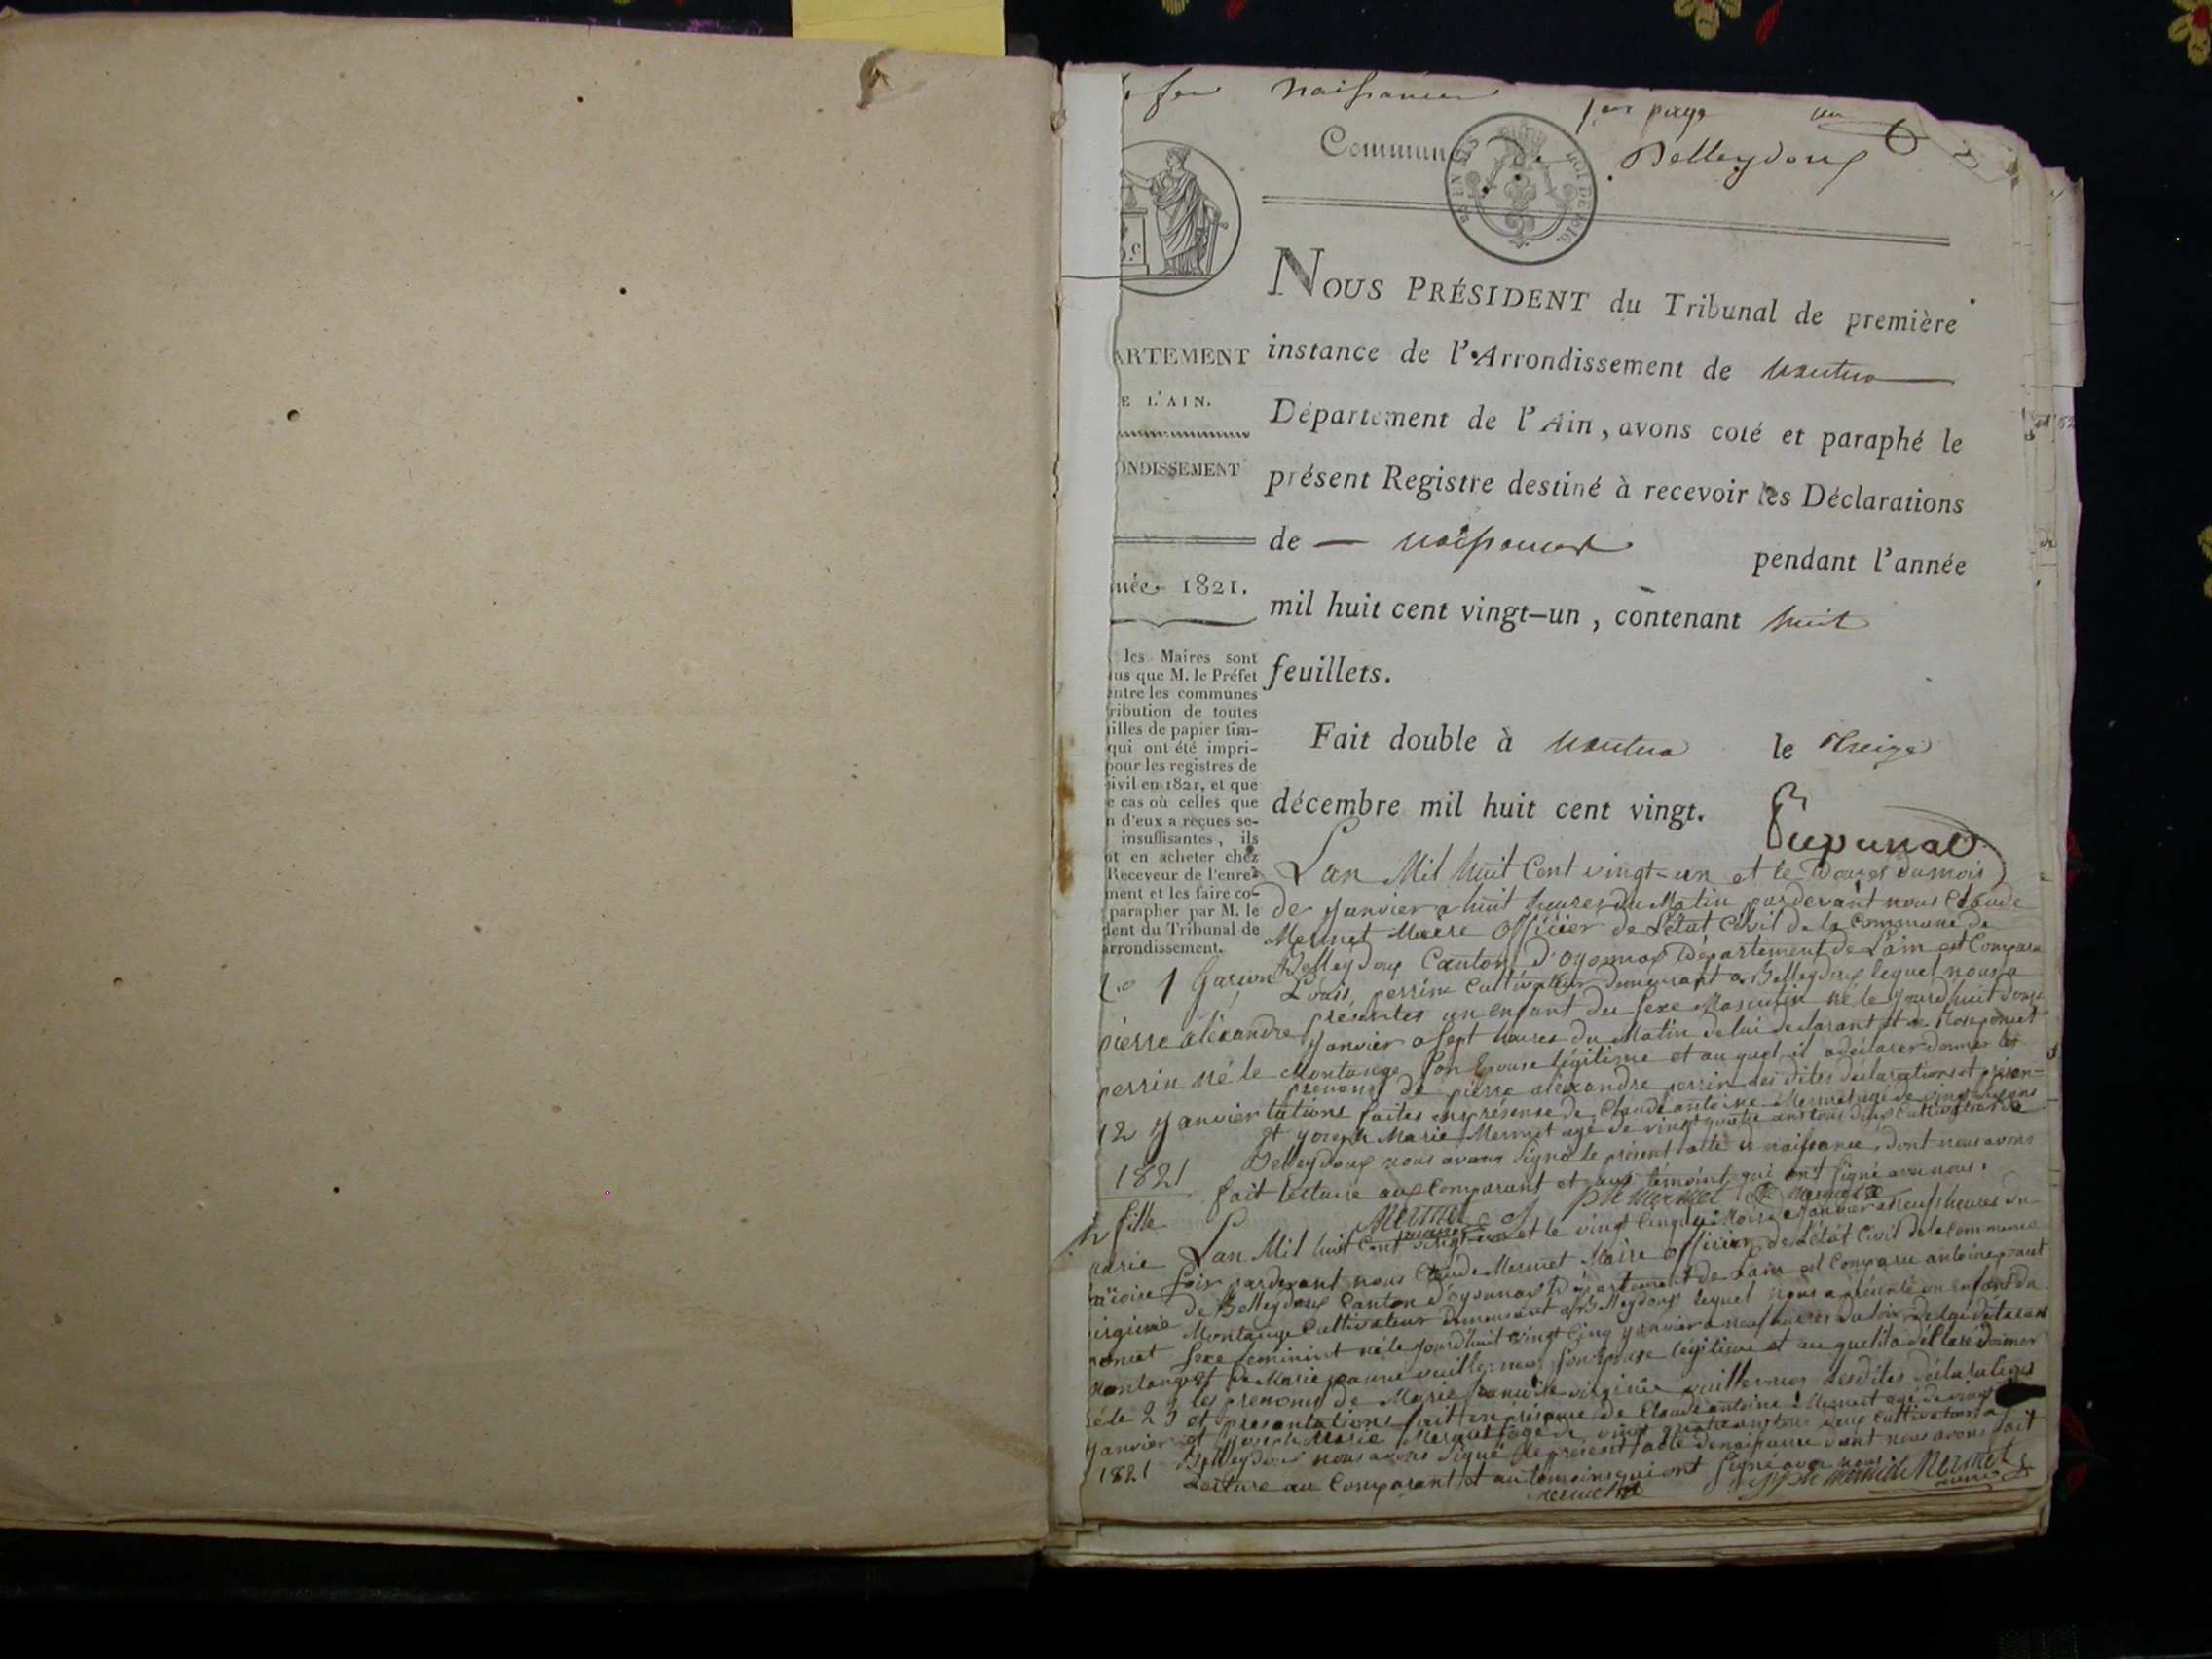 naissances 1er page un
Commune de Belleydoux
NOUS PRÉSIDENT du Tribunal de première
instance de l'Arrondissement de Nantua
Département de l'Ain, avons coté et paraphé le
présent Registre destiné à recevoir les Déclarations
de — naissances pendant l'année
mil huit cent vingt-un, contenant huit
feuillets.
Fait double à Nantua le treize
décembre mil huit cent vingt.
ARTEMENT
E L'AIN.
ONDISSEMENT
née 1821.
les Maires sont
us que M. le Préfet
entre les communes
ribution de toutes
illes de papier tim-
qui ont été impri-
pour les registres de
ivil en 1821, et que
e cas où celles que
n d'eux a reçues se-
insuffisantes, ils
nt en acheter chez
Receveur de l'enre-
ment et les faire co-
parapher par M. le
dent du Tribunal de
arrondissement.
1 Garçon
pierre alexandre
perrin né le
12 Janvier
1821
Lan Mil huit Cent vingt-un et le Douzes du mois
de Janvier a huit heures du Matin pardevant nous Claude
Mermet Maire Officier de Letat Civil de la Commune de
Belleydoux Canton d'oyonnax Département de Lain est Comparu
Louis perrin Cultivateur demeurant a Belleydoux lequel nous a
présentes un enfant du sexe Masculin né le jourdhuit douze
Janvier a sept heures du Matin de lui declarant et de Rose poncet
Montange son Epouse légitime et au quel il a déclarer donner les
prenoms de pierre alexandre perrin des dites declarations et présen-
tations faites en présense de Claude antoine Mermet agé de vingt ans
et joseph Marie Mermet agé de vingt quatre ans tous deux Cultivateur a
Belleydoux nous avons signé le présent acte de naissance, dont nous avons
fait lecture aux Comparant et aux témoint qui ont signé avec nous.
Mermet maire J ph Mermet Mermet
2 fille
marie
francoise
virginie
poncet
montange
né le 25
Janvier
1821
Lan Mil huit Cent vingt-un et le vingt Cinq du Mois Janvier a neuf heures du
soir pardevant nous Claude Mermet Maire Officier de Létat Civil de la Commune
de Belleydoux Canton d'oyonnax Département de Lain est Comparu antoine poncet
Montange Cultivateur demeurant a Belleydoux lequel nous a présenté un enfant du
sexe feminint né le jourdhuit vingt Cinq Janvier a neuf heures du soir de lui déclarant
et de Marie jeanne vuillermoz son Epouse légitime et au quel il a déClare donner
les prenoms de Marie francoise virginie vuillermoz desdites déclarations
et presentations fait en présence de Claude antoine Mermet agé de vingt
et joseph Marie Mermet agé de vingt quatre ans tous deux Cultivateurs a
Belleydoux nous avons signé le présent acte de naissance dont nous avons fait
Lecture au Comparant et au temoins qui ont signé avec nous.
Mermet J ph Mermet Mermet maire